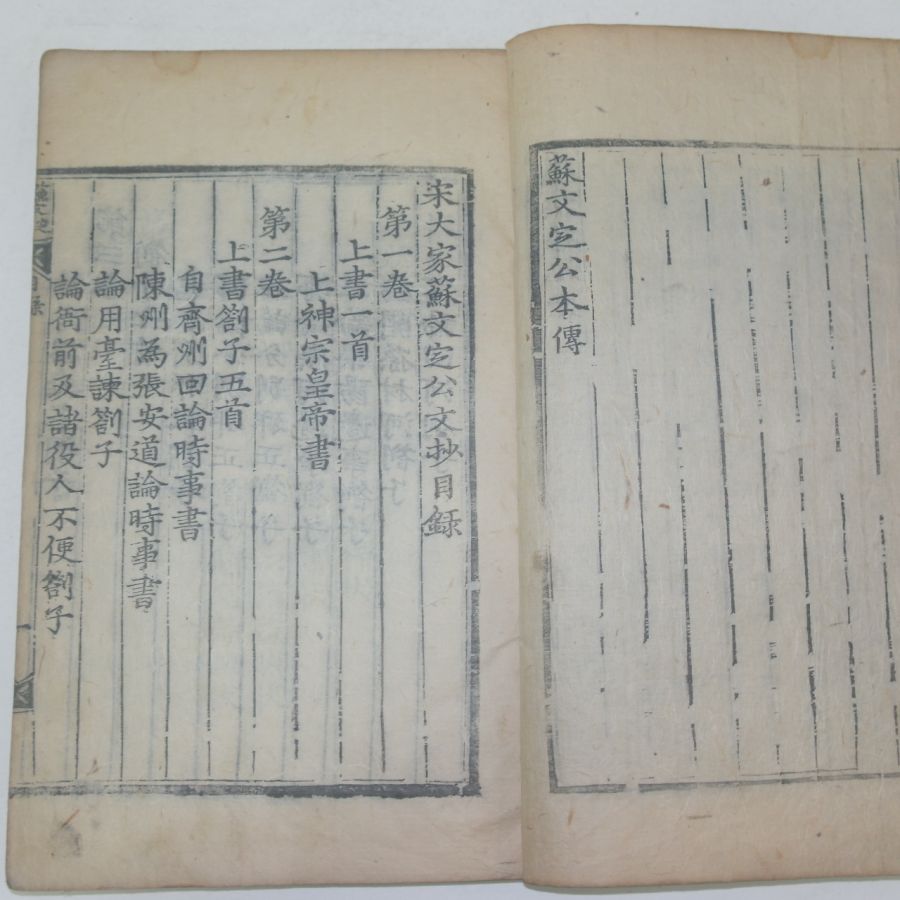 蘇文定公本傳
宋大家蘇文定公文抄目録
第一卷
上書一首
上神宗皇帝書
第二卷
上書劄子五首
自齊州回論時事書
陳州為張安道論時事書
論用臺諫劄子
論衙前及諸役人不便劄子
目录